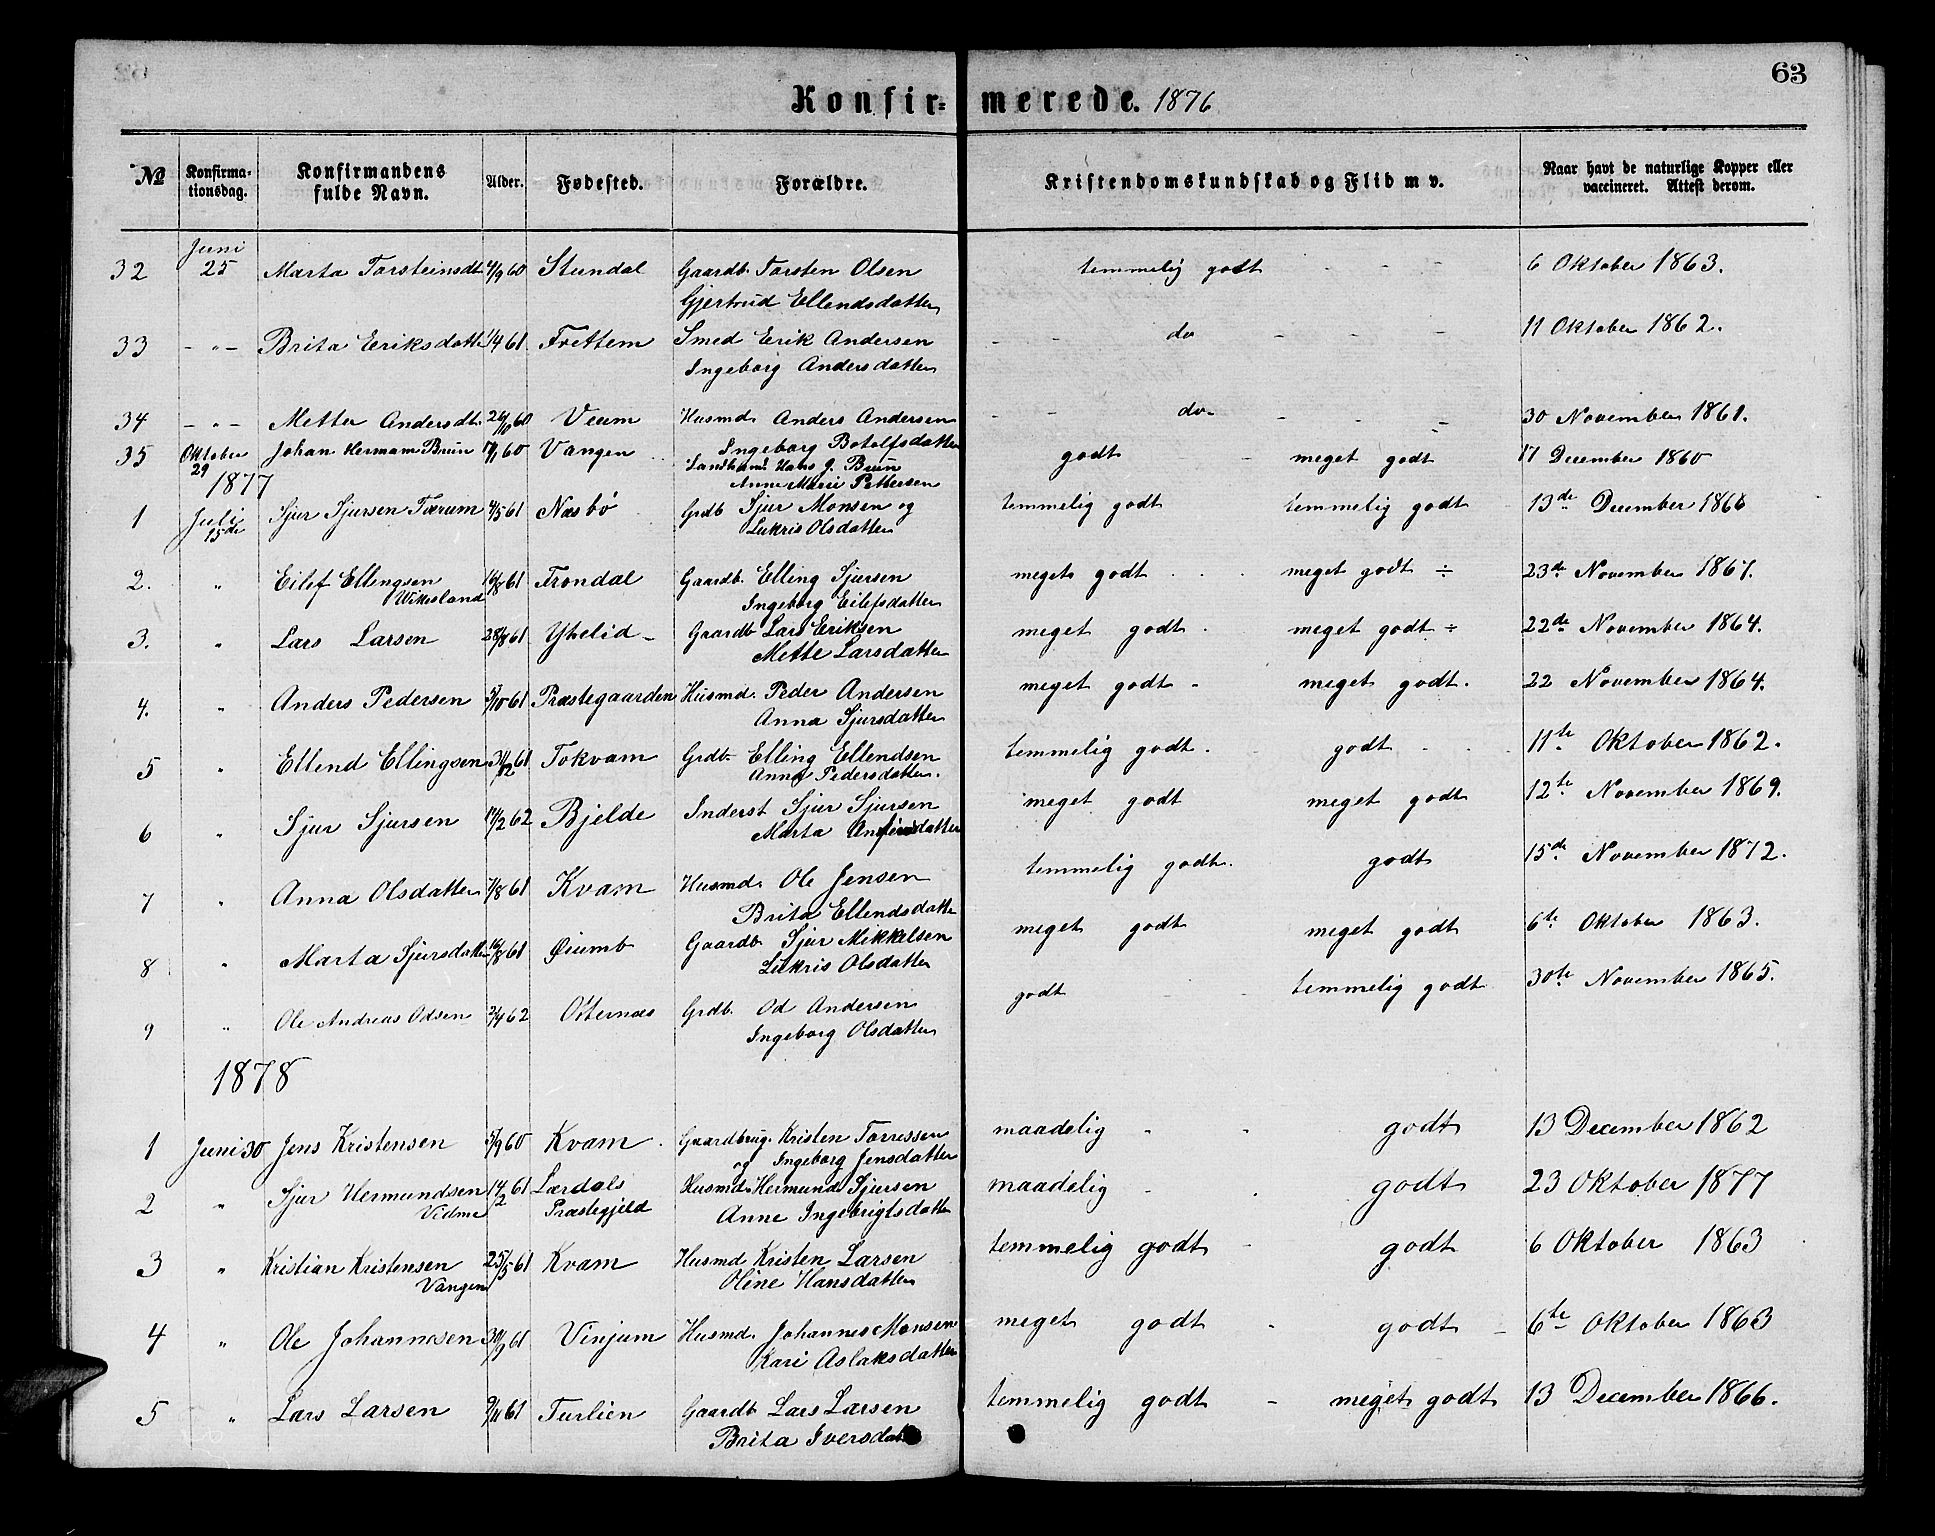 63
Konfir- merede. 1876
No Konfirma- Konfirmandens Alder. Fødested. Forældre. Kristendomskundskab og Flid m v. Naar havt de naturlige Kopper eller
tionsdag. fulde Navn. vaccineret. Attest derom.
Juni
32 25 Marta Torsteinsdt. 4/9 60 Stundal Gaardb. Torsten Olsen temmelig godt - - - 6 Oktober 1863.
Gjertrud Ellendsdatter
33 - „ - Brita Eriksdatter 1/4 61 Frettem Smed Erik Andersen - - do - - - 11 Oktober 1862.
Ingeborg Andersdatter
34 - „ - Mette Andersdt. 26/10 60 Veum Husmd. Anders Andersen - - do - - - 30 November 1861.
Ingeborg Botolfsdatter
35 Oktober Johan Herman Brun 60 Vangen Landhand. Hans J. Brun godt meget godt 17 December 1860
29 Anne Marie Pettersen
1877
1 Juli Sjur Sjursen Tærum 4/5 61 Næsbø Grdb Sjur Monsen og temmelig godt temmelig godt 13de December 1866
15de Lukris Olsdatter
2. „ Eilef Ellingsen 16/8 61 Frondal Gaardb. Elling Sjursen meget godt . . . meget godt ÷ 23de November 1867.
Wikesland Ingeborg Eilefsdatter
3. „ Lars Larsen 28/8 61 Ytrelid - Gaardb Lars Eriksen meget godt . meget godt ÷ 22de November 1864.
Mette Larsdatter
4. „ Anders Pedersen 5/10 61 Præstegaarden Husmd. Peder Andersen meget godt - meget godt. 22 November 1864.
Anna Sjursdatter
5 „ Ellend Ellingsen 31/12 61 Tokvam Grdb. Elling Ellendsen temmelig godt. godt . . . 11te Oktober 1862.
Anna Pedersdatter.
6 „ Sjur Sjursen 14/2 62 Bjelde Inderst Sjur Sjursen meget godt meget godt 12te November 1869.
Marta Anfinsdatter
7 „ Anna Olsdatter 7/8 61 Kvam Husmd. Ole Jensen temmelig godt. godt 15de November 1872.
Brita Ellendsdatter
8 „ Marta Sjursdatter 16/8 61 Øiumb Gaardb Sjur Mikkelsen meget godt meget godt 6te Oktober 1863.
Lukris Olsdatter
9 „ Ole Andreas Odsen 2/4 62 Otternæs Grdb. Od Andersen godt - - temmelig godt 30te November 1865.
Ingeborg Olsdatter
1878
1 Juni 30 Jens Kristensen 5/9 60 Kvam . Gaardbrug. Kristen Torressen maadelig - - godt 13 December 1862
og Ingeborg Jensdatter
2 „ Sjur Hermundsen 14/2 61 Lærdals Husmd. Hermund Sjursen maadelig - . godt 23 Oktober 1877
Vidme Præstegjeld Anne Ingebrigtsdatter
3 „ Kristian Kristensen 25/5 61 Kvam Husmd Kristen Larsen temmelig godt - godt 6 Oktober 1863
Vangen Oline Hansdatter
4 „ Ole Johannesen 30/9 61 Vinjum Husmd. Johannes Monsen meget godt - godt - 6te Oktober 1863
Kari Aslaksdatter
5 „ Lars Larsen 9/11 61 Turlien Gaardb Lars Larsen temmelig godt - meget godt 13 December 1866.
Brita Iversdatter